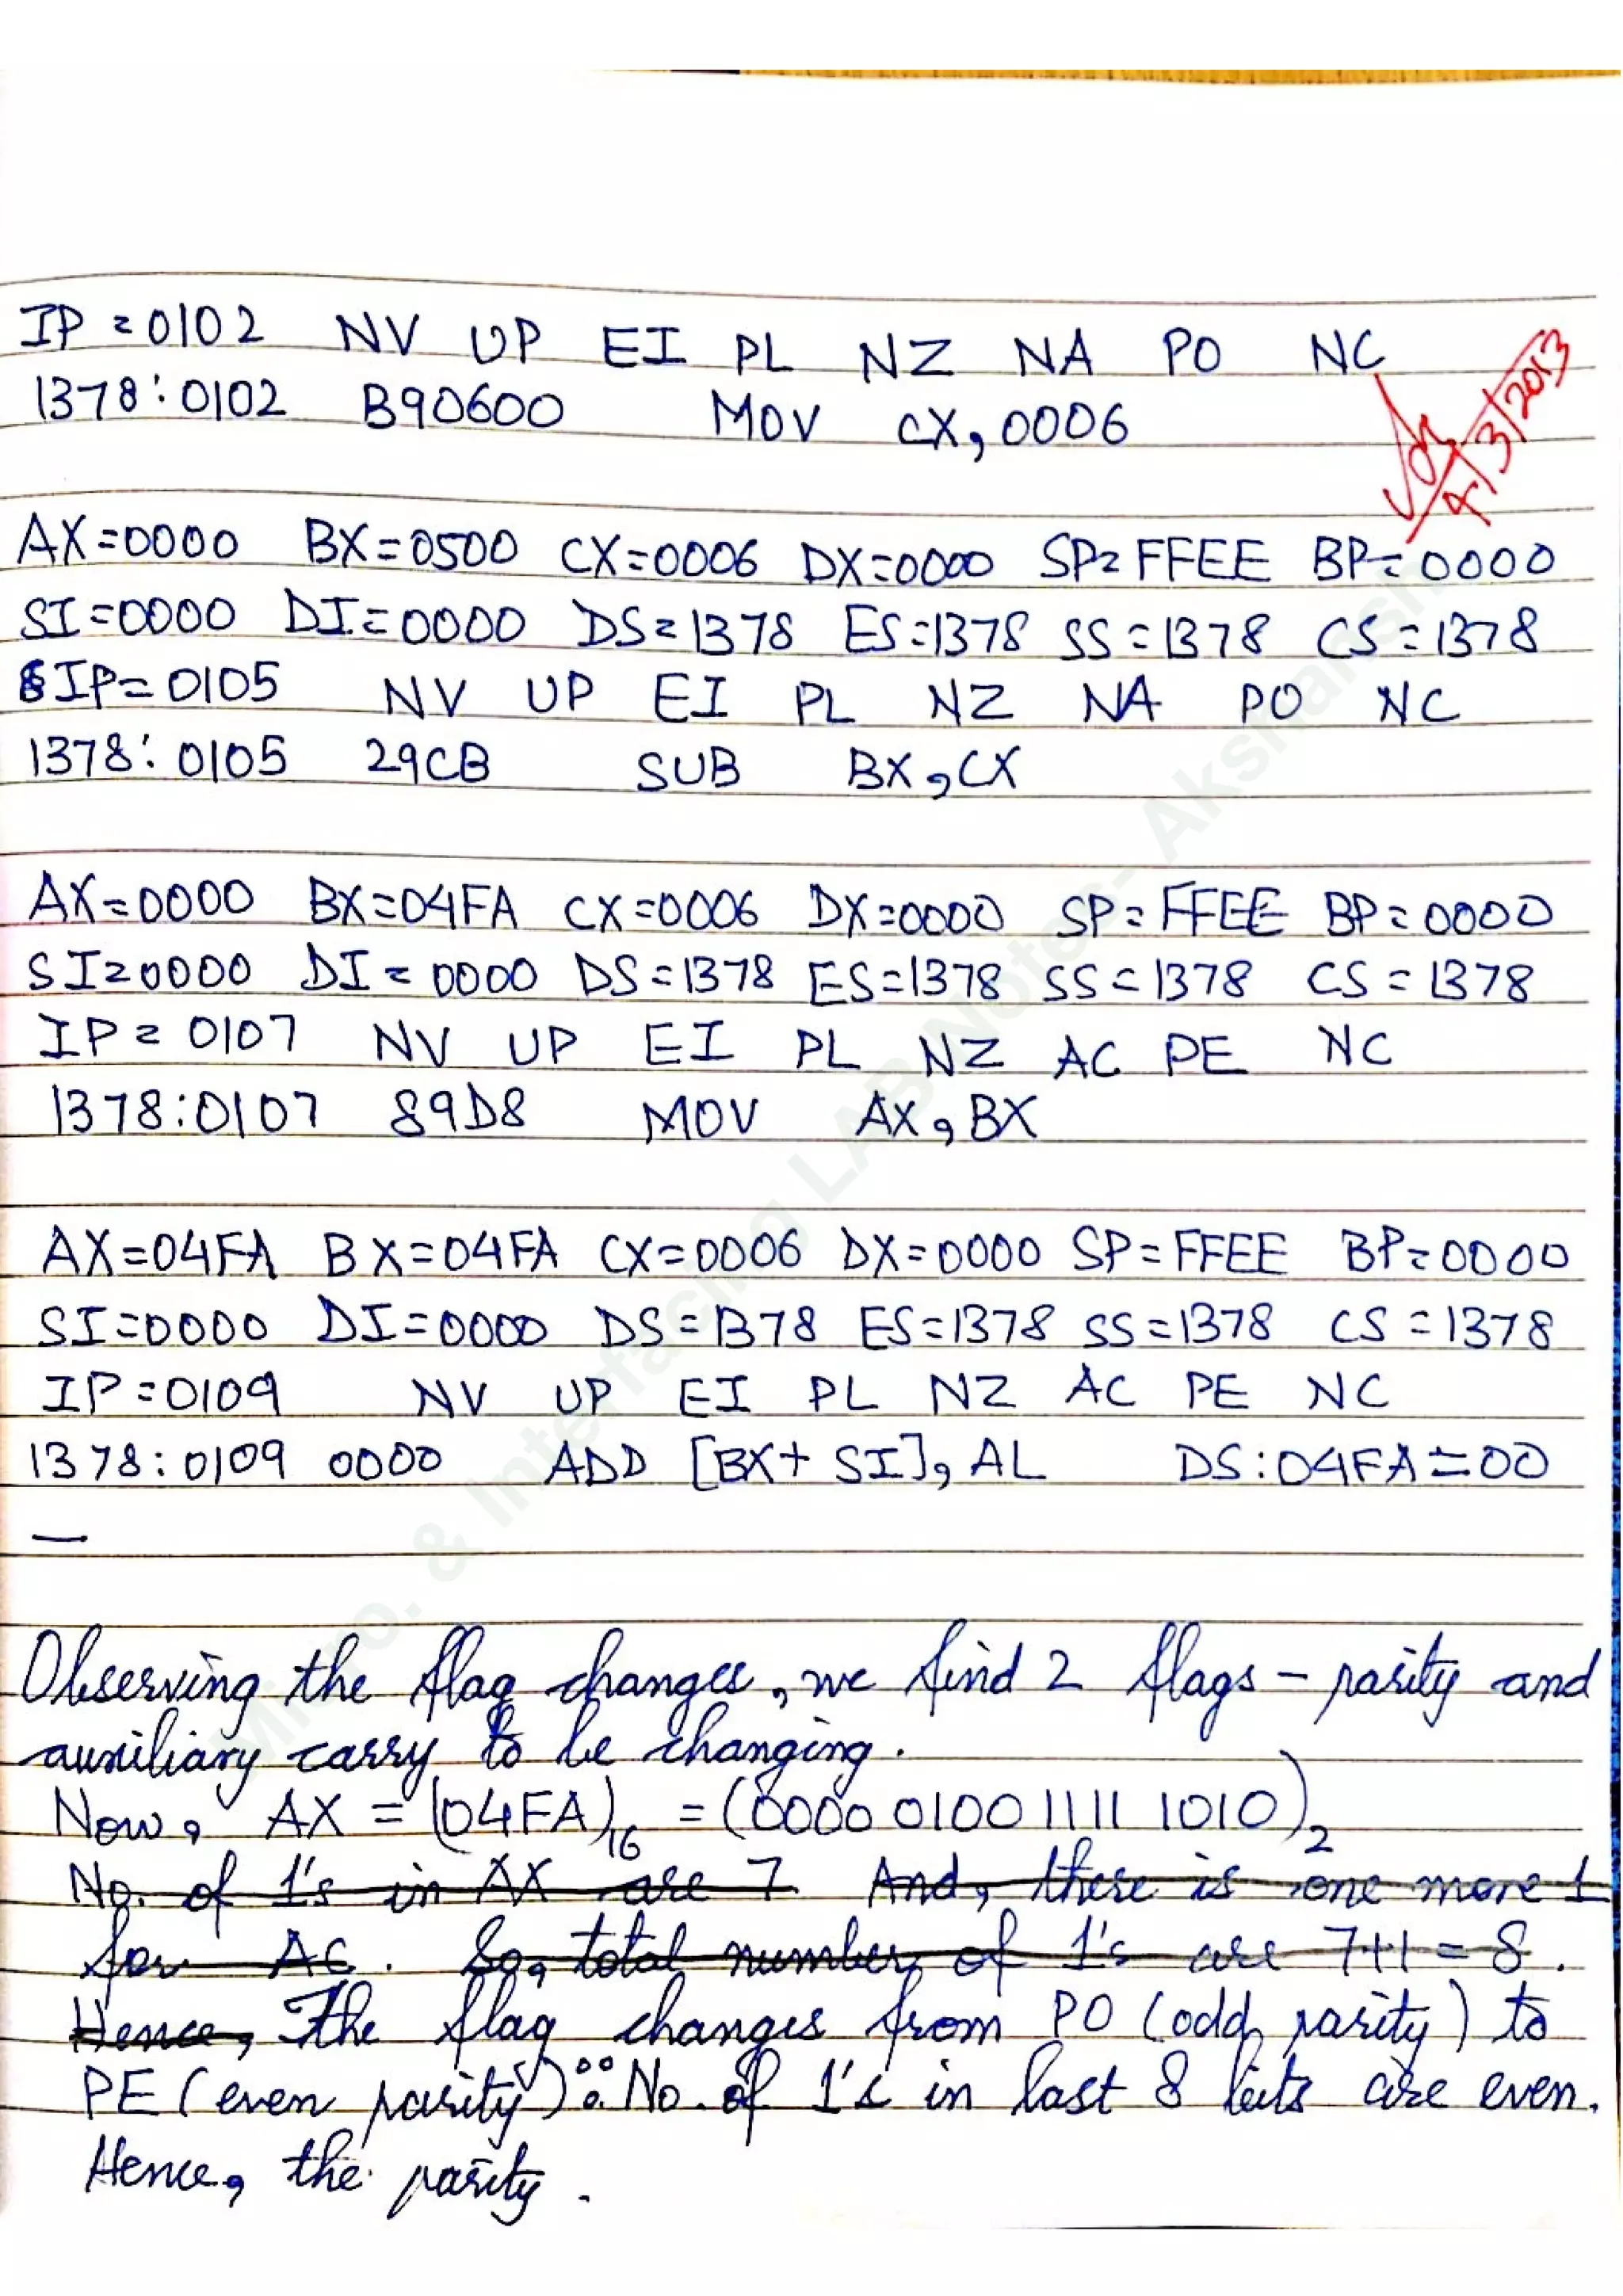 IP = 0102 NV UP EI PL NZ NA PO NC
1378:0102 B90600 MOV CX,0006
4/3/2013
AX=0000 BX=0500 CX=0006 DX=0000 SP=FFEE BP=0000
SI=0000 DI=0000 DS=1378 ES=1378 SS=1378 CS=1378
IP=0105 NV UP EI PL NZ NA PO NC
1378:0105 29CB SUB BX,CX
AX=0000 BX=04FA CX=0006 DX=0000 SP=FFEE BP=0000
SI=0000 DI=0000 DS=1378 ES=1378 SS=1378 CS=1378
IP=0107 NV UP EI PL NZ AC PE NC
1378:0107 89D8 MOV AX,BX
AX=04FA BX=04FA CX=0006 DX=0000 SP=FFEE BP=0000
SI=0000 DI=0000 DS=1378 ES=1378 SS=1378 CS=1378
IP=0109 NV UP EI PL NZ AC PE NC
1378:0109 0000 ADD [BX+SI],AL DS:04FA=00
–
Observing the flag changes, we find 2 flags – parity and
auxiliary carry to be changing.
Now, AX = (04FA)16 = (0000 0100 1111 1010)2
No. of 1's in AX are 7. And, there is one more 1
for AC. So, total number of 1's are 7+1 = 8.
Hence, The flag changes from PO (odd parity) to
PE (even parity) ∵ No. of 1's in last 8 bits are even.
Hence, the parity.
Micro. & Interfacing LAB Notes- Akshansh